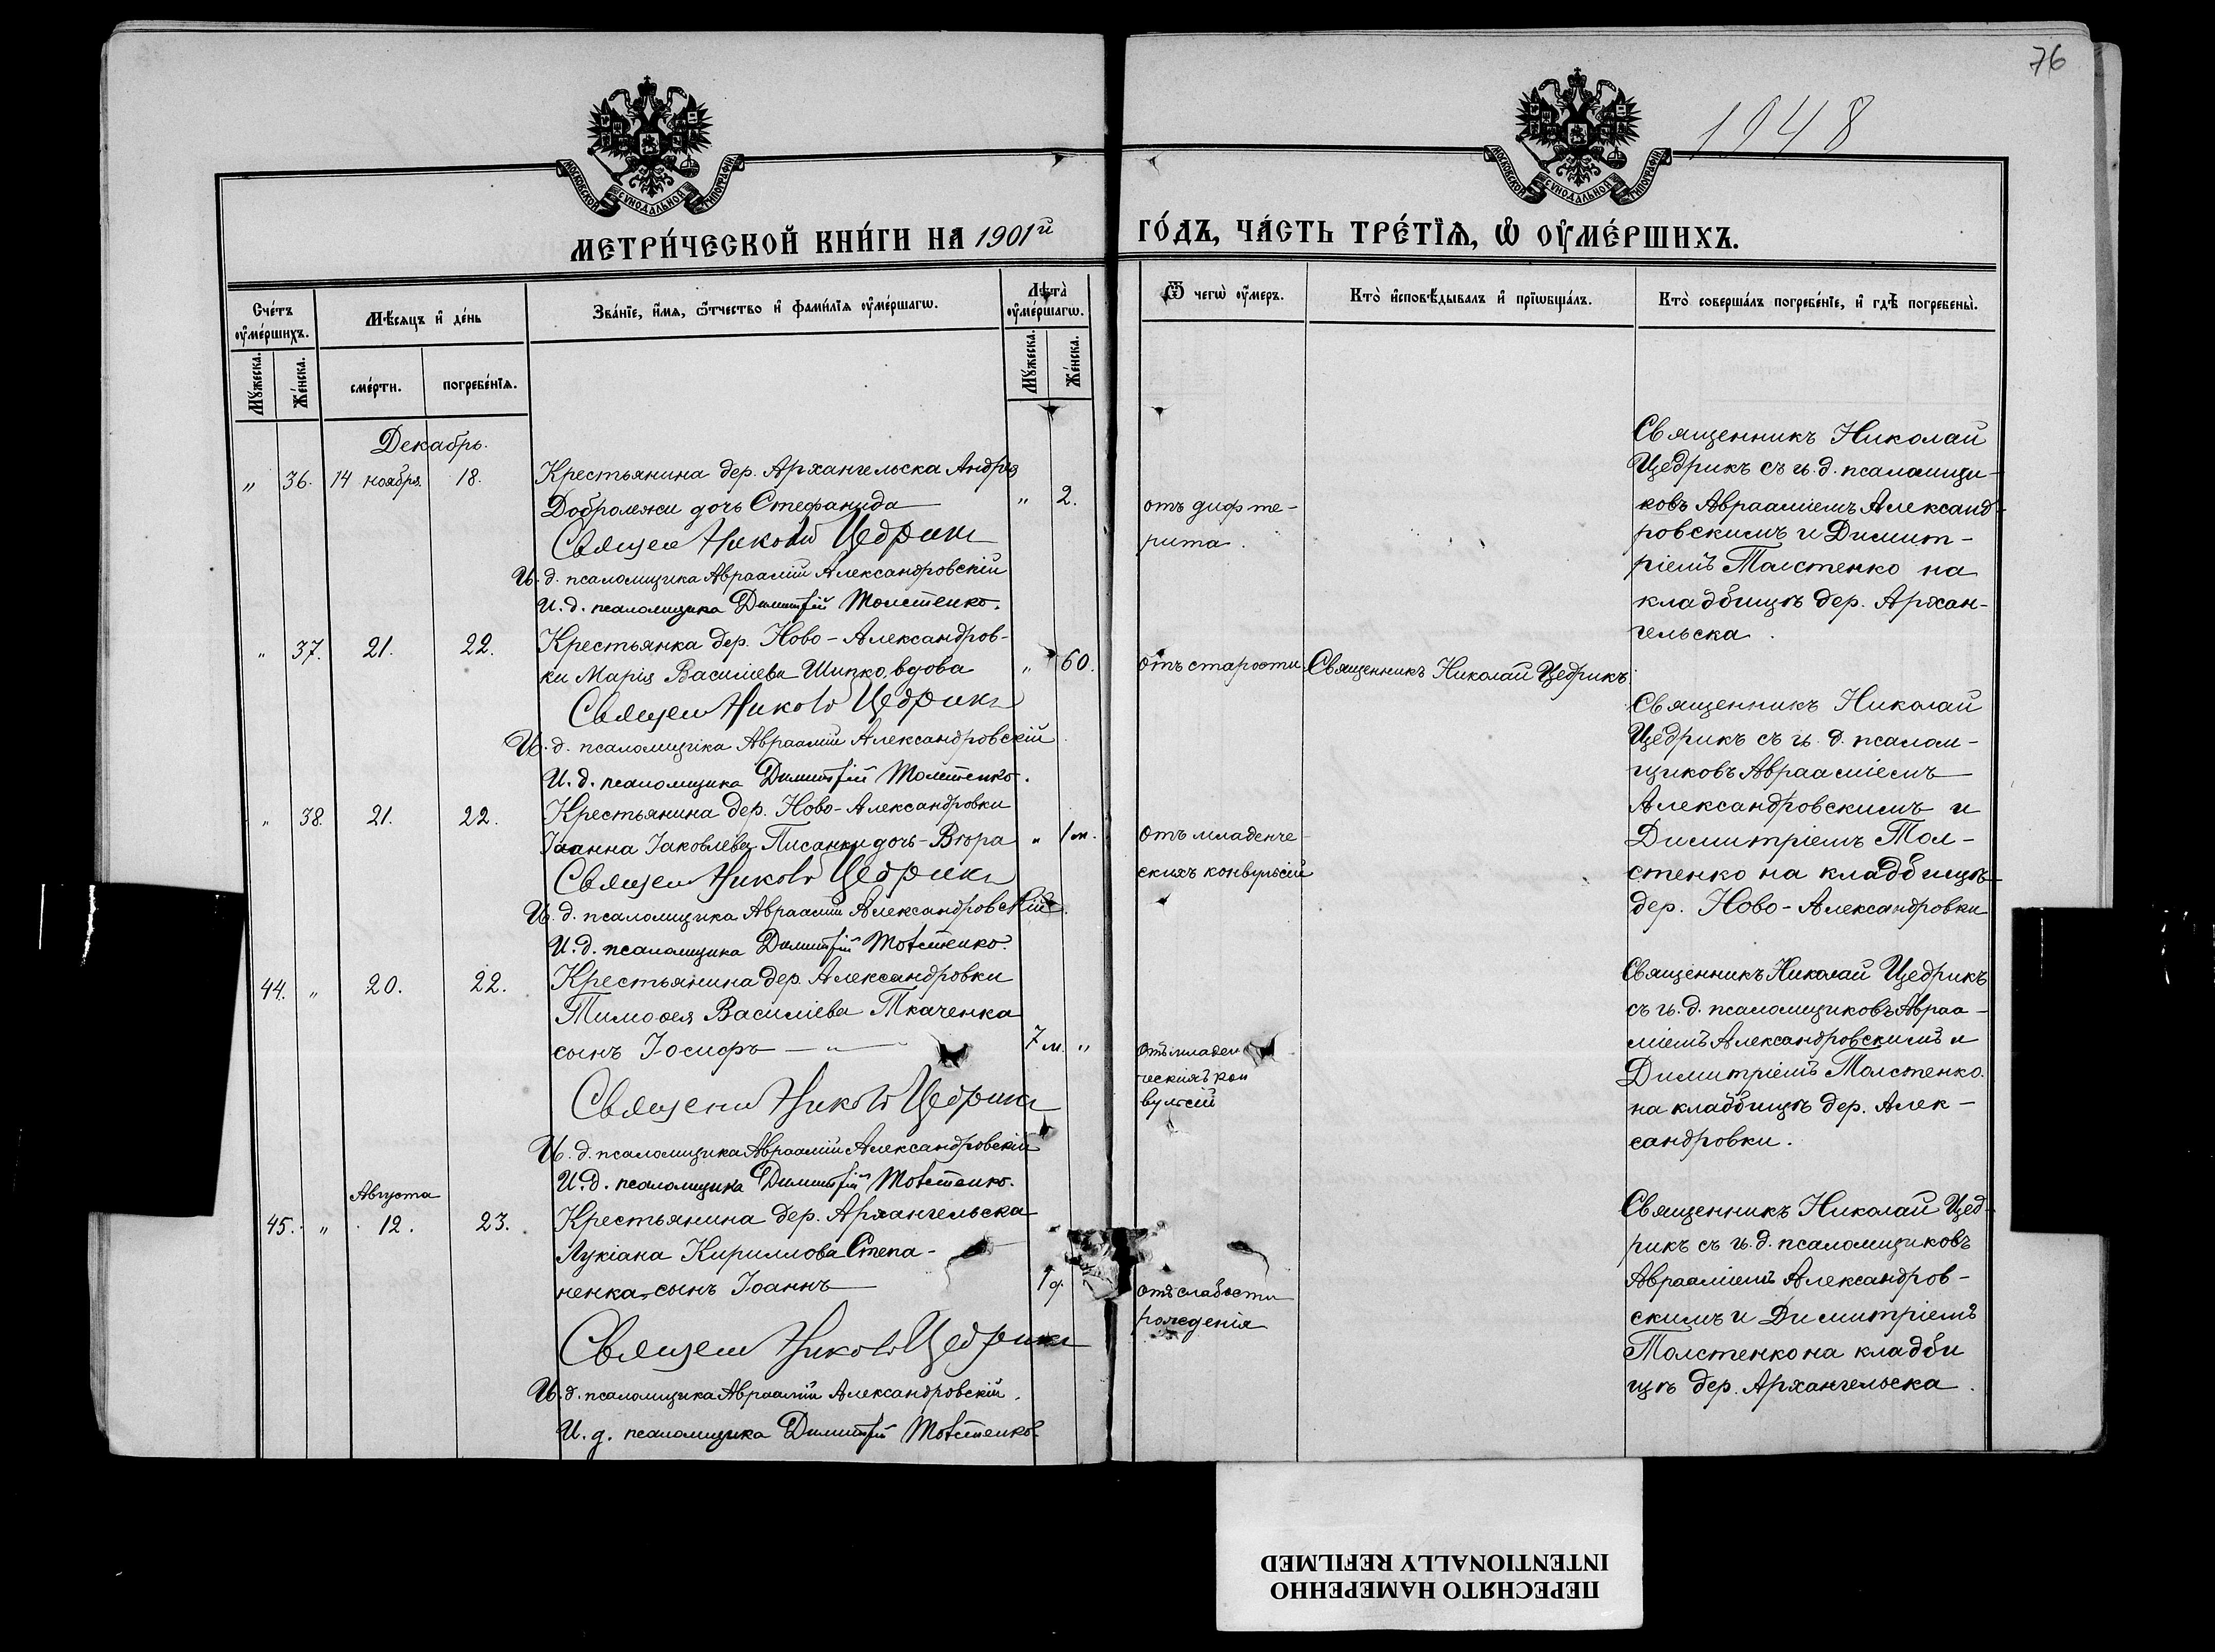 76
1948
МОСКОВСКОЙ СУНОДАЛЬНОЙ ТИПОГРАФІИ
МОСКОВСКОЙ СУНОДАЛЬНОЙ ТИПОГРАФІИ
МЕТРИ́ЧЕСКОЙ КНИ́ГИ НА 1901й
ГО́ДЪ, ЧА́СТЬ ТРЕ́ТЇѦ, Ѡ ОУ҆МЕ́РШИХЪ.
Сче́тъ оу҆ме́ршихъ.
Мꙋ́жеска.
Же́нска.
Мѣ́сяцъ и҆ де́нь
сме́рти.
погребе́нїѧ.
Зва́нїе, и҆́мѧ, ѻ҆́тчество и҆ фами́лїѧ оу҆ме́ршагѡ.
Лѣ́та̀ оу҆ме́ршагѡ.
Мꙋ́жеска.
Же́нска.
Ѿ чегѡ̀ оу҆́меръ.
Кто̀ и҆сповѣ́дывалъ и҆ прїѡбща́лъ.
Кто̀ соверша́лъ погребе́нїе, и҆ гдѣ̀ погребены̀.
Декабрь.
" 36. 14 ноября. 18.
Крестьянина дер. Архангельска Андрея
Добролежи дочь Стефанида " 2.
Священ Николай Щедрикъ
И. д. псаломщика Авраамій Александровскій
И. д. псаломщика Димитрій Толстенко.
отъ дифте-
рита.
Священникъ Николай
Щедрикъ съ и. д. псаломщи-
ковъ Авраамiемъ Александ-
ровскимъ и Димит-
рiемъ Толстенко на
кладбищѣ дер. Архан-
гельска.
" 37. 21. 22.
Крестьянка дер. Ново-Александров-
ки Марія Василіева Шипко, вдова " 60.
Священ Николай Щедрикъ
И. д. псаломщика Авраамій Александровскій
И. д. псаломщика Димитрій Толстенко.
отъ старости
Священникъ Николай Щедрикъ
" 38. 21. 22.
Крестьянина дер. Ново-Александровки
Іоанна Іаковлева Писанки дочь-Вѣра " 1 м.
Священ Николай Щедрикъ
И. д. псаломщика Авраамій Александровскій.
И. д. псаломщика Димитрій Толстенко.
отъ младенче-
скихъ конвульсій
Священникъ Николай
Щедрикъ съ и. д. псалом-
щиковъ Авраамiемъ
Александровскимъ и
Димитріемъ Тол-
стенко на кладбищѣ
дер. Ново-Александровки
44. " 20. 22.
Крестьянина дер. Александровки
Тимоѳея Василіева Ткаченка
сынъ Іосифъ — " — 7 м. "
Священ Николай Щедрикъ
И. д. псаломщика Авраамій Александровскій
И. д. псаломщика Димитрій Толстенко.
отъ младен
ческихъ кон
вульсій
Священникъ Николай Щедрикъ
съ и. д. псаломщиковъ Авраа-
міемъ Александровскимъ и
Димитріемъ Толстенко.
на кладбищѣ дер. Алек-
сандровки.
Августа
45. " 12. 23.
Крестьянина дер. Архангельска
Лукіана Кириллова Степа-
ненка сынъ Іоаннъ 1 д.
Священ Николай Щедрикъ
И. д. псаломщика Авраамій Александровскій.
И. д. псаломщика Димитрій Толстенко.
отъ слабости
рожденія
Священникъ Николай Щед-
рикъ съ и. д. псаломщиковъ
Авраамiемъ Александров-
скимъ и Димитріемъ
Толстенко на кладби
щѣ дер. Архангельска.
ПЕРЕСНЯТО НАМЕРЕННО
INTENTIONALLY REFILMED